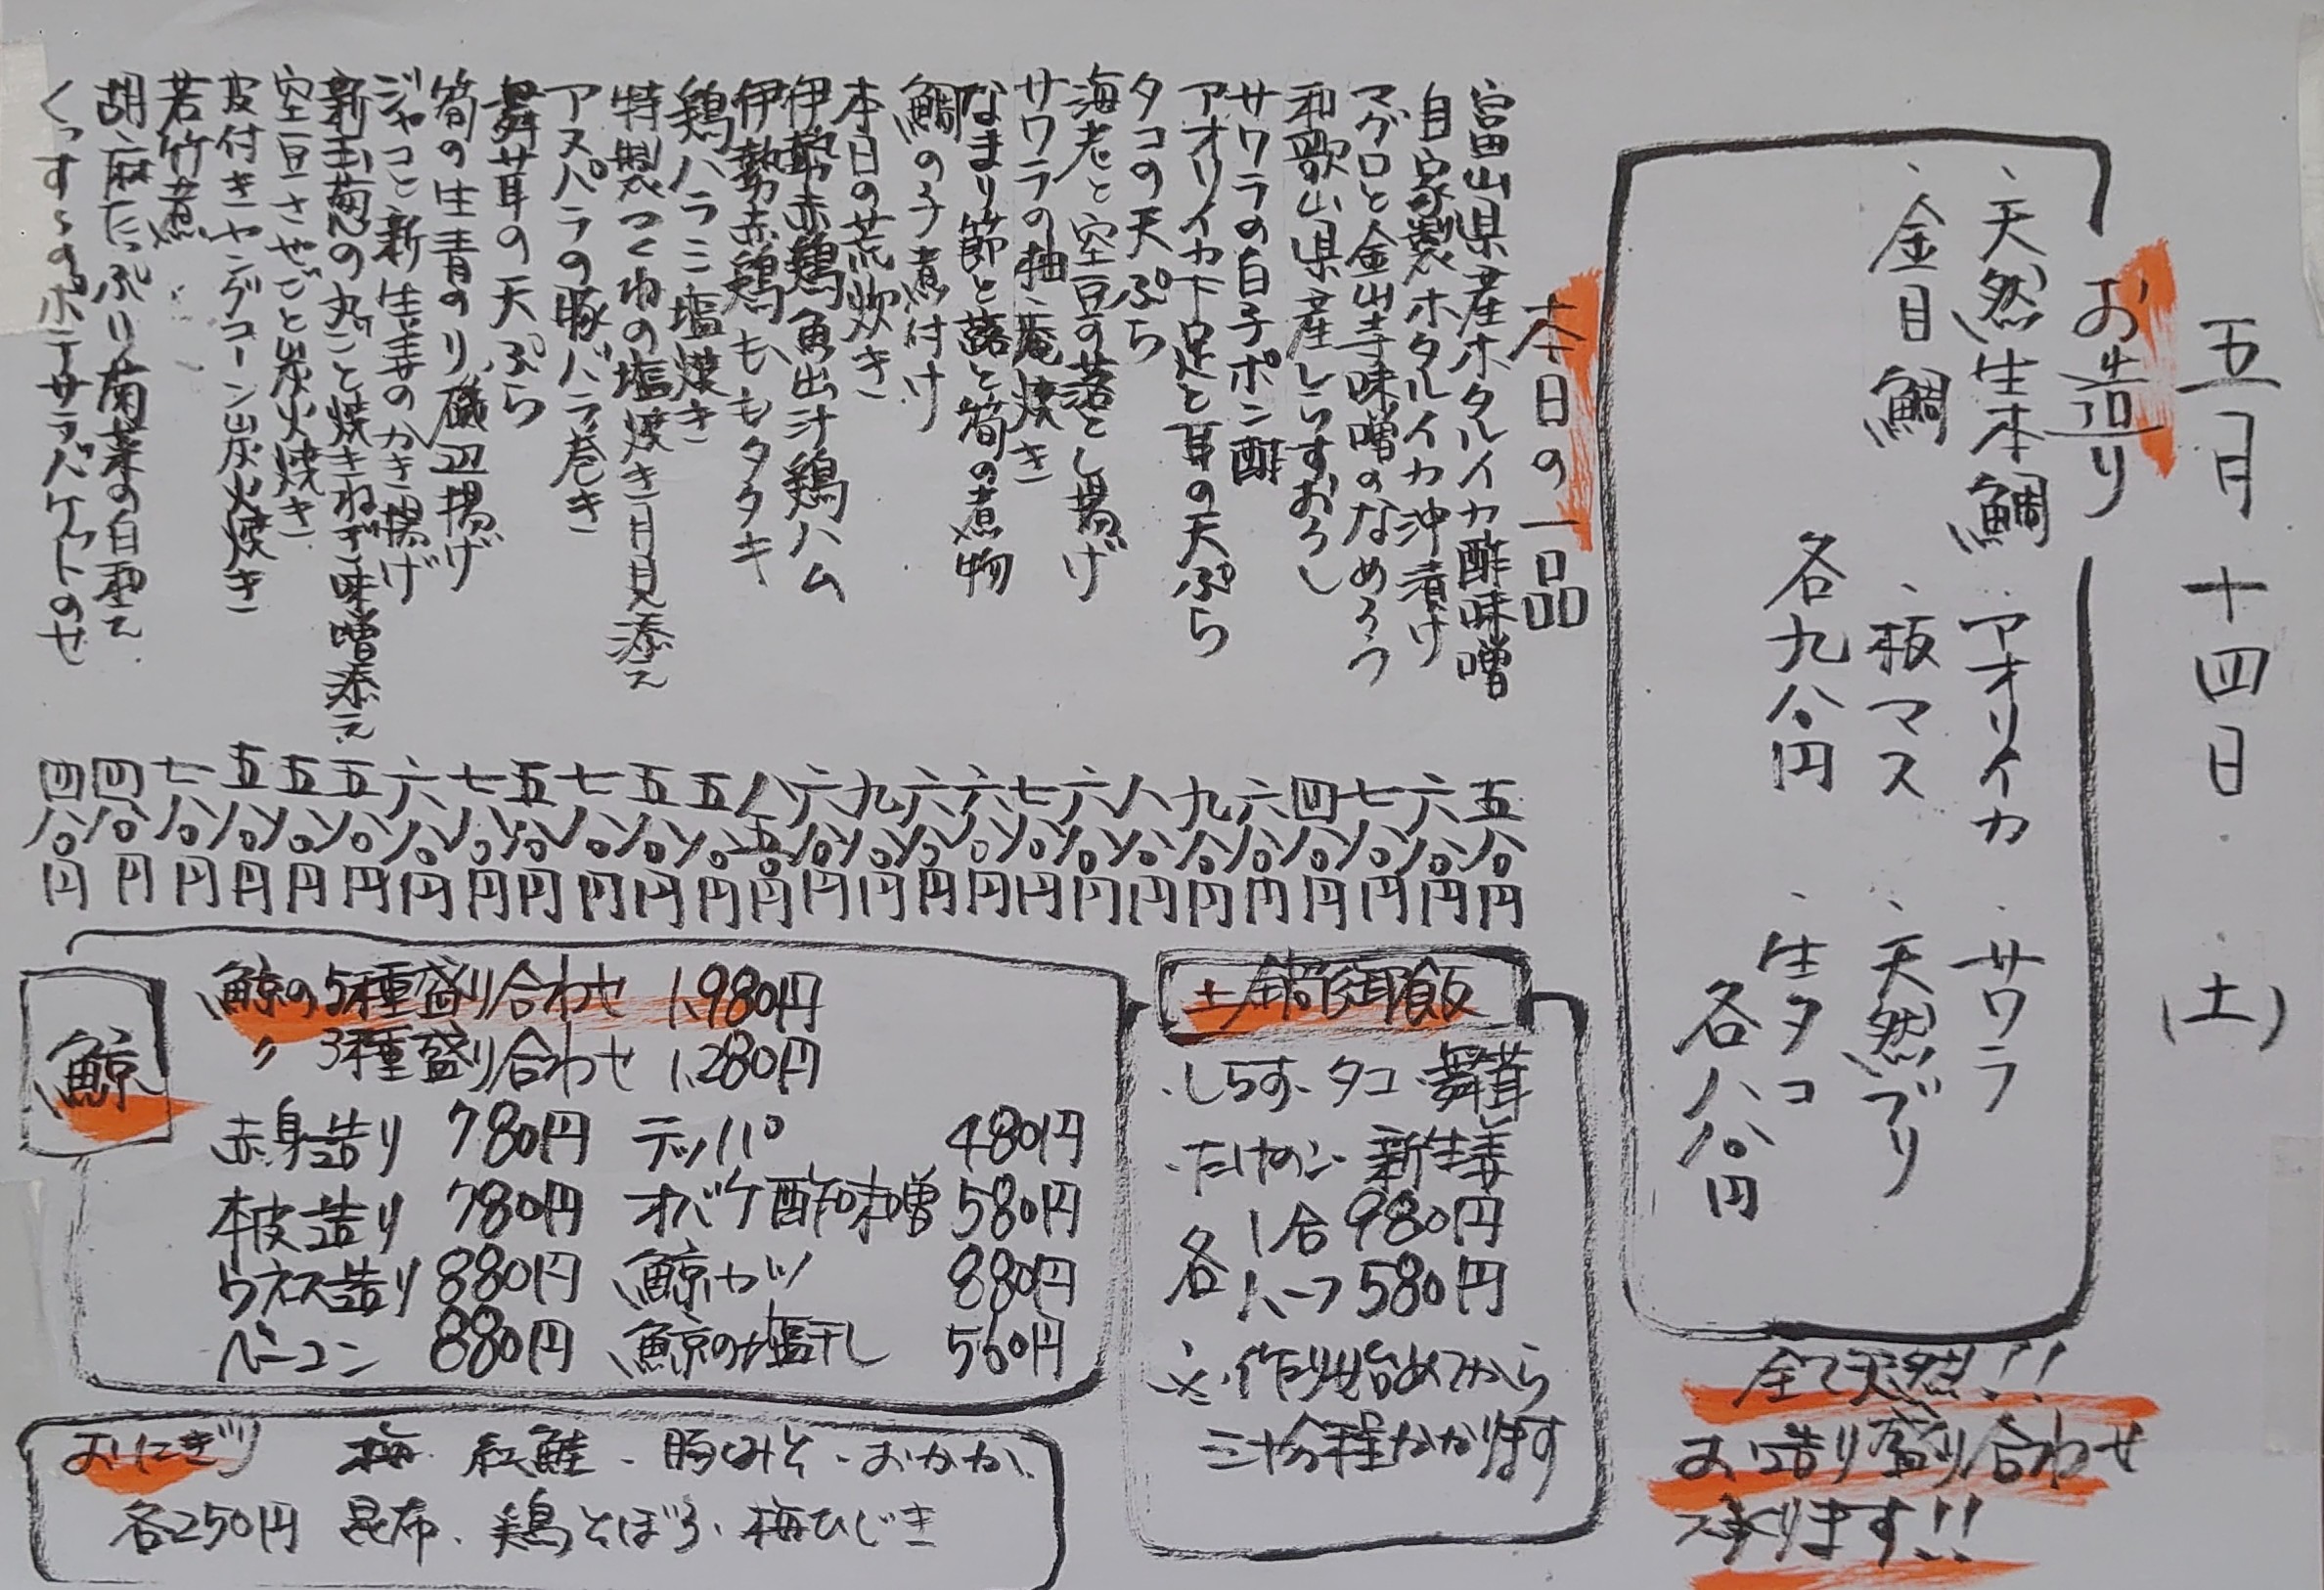 五月十四日(土)
お造り
・天然生本鯛 ・アオリイカ ・サワラ
・金目鯛 ・板マス ・天然ブリ
各九八〇円 ・生タコ
各八八〇円
全て天然!!
お造り盛り合わせ
承ります!!
本日の一品
富山県産ホタルイカ酢味噌 五八〇円
自家製ホタルイカ沖漬け 六八〇円
マグロと金山寺味噌のなめろう 七八〇円
和歌山県産しらすおろし 四八〇円
サワラの白子ポン酢 六八〇円
アオリイカ下足と耳の天ぷら 九八〇円
タコの天ぷら 八八〇円
海老と空豆の落とし揚げ 六八〇円
サワラの柚庵焼き 七八〇円
なまり節と蕗と筍の煮物 六八〇円
鯛の子煮付け 六八〇円
本日の荒炊き 九八〇円
伊勢赤鶏魚出汁鶏ハム 六八〇円
伊勢赤鶏ももタタキ 八五〇円
鶏ハラミ塩焼き 五八〇円
特製つくねの塩焼き月見添え 五八〇円
アスパラの豚バラ巻き 七八〇円
舞茸の天ぷら 五八〇円
筍の生青のり磯辺揚げ 七八〇円
ジャコと新生姜のかき揚げ 六八〇円
新玉葱の丸ごと焼きねぎ味噌添え 五八〇円
空豆さやごと炭火焼き 五八〇円
皮付きヤングコーン炭火焼き 五八〇円
若竹煮 七八〇円
胡麻たっぷり菊菜の白和え 四八〇円
ポテサラバケットのせ 四八〇円
土鍋御飯
・しらす・タコ・舞茸
・たけのこ・新生姜
各 1合 980円
ハーフ 580円
※作り始めてから
三十分程かかります
鯨
鯨の5種盛り合わせ 1,980円
〃 3種盛り合わせ 1,280円
赤身造り 780円 テッパ 480円
本皮造り 780円 オバケ酢味噌 580円
ウネス造り 880円 鯨カツ 880円
ベーコン 880円 鯨の塩干し 560円
おにぎり 梅・紅鮭・豚みそ・おかか、
各250円 昆布・鶏そぼろ・梅ひじき